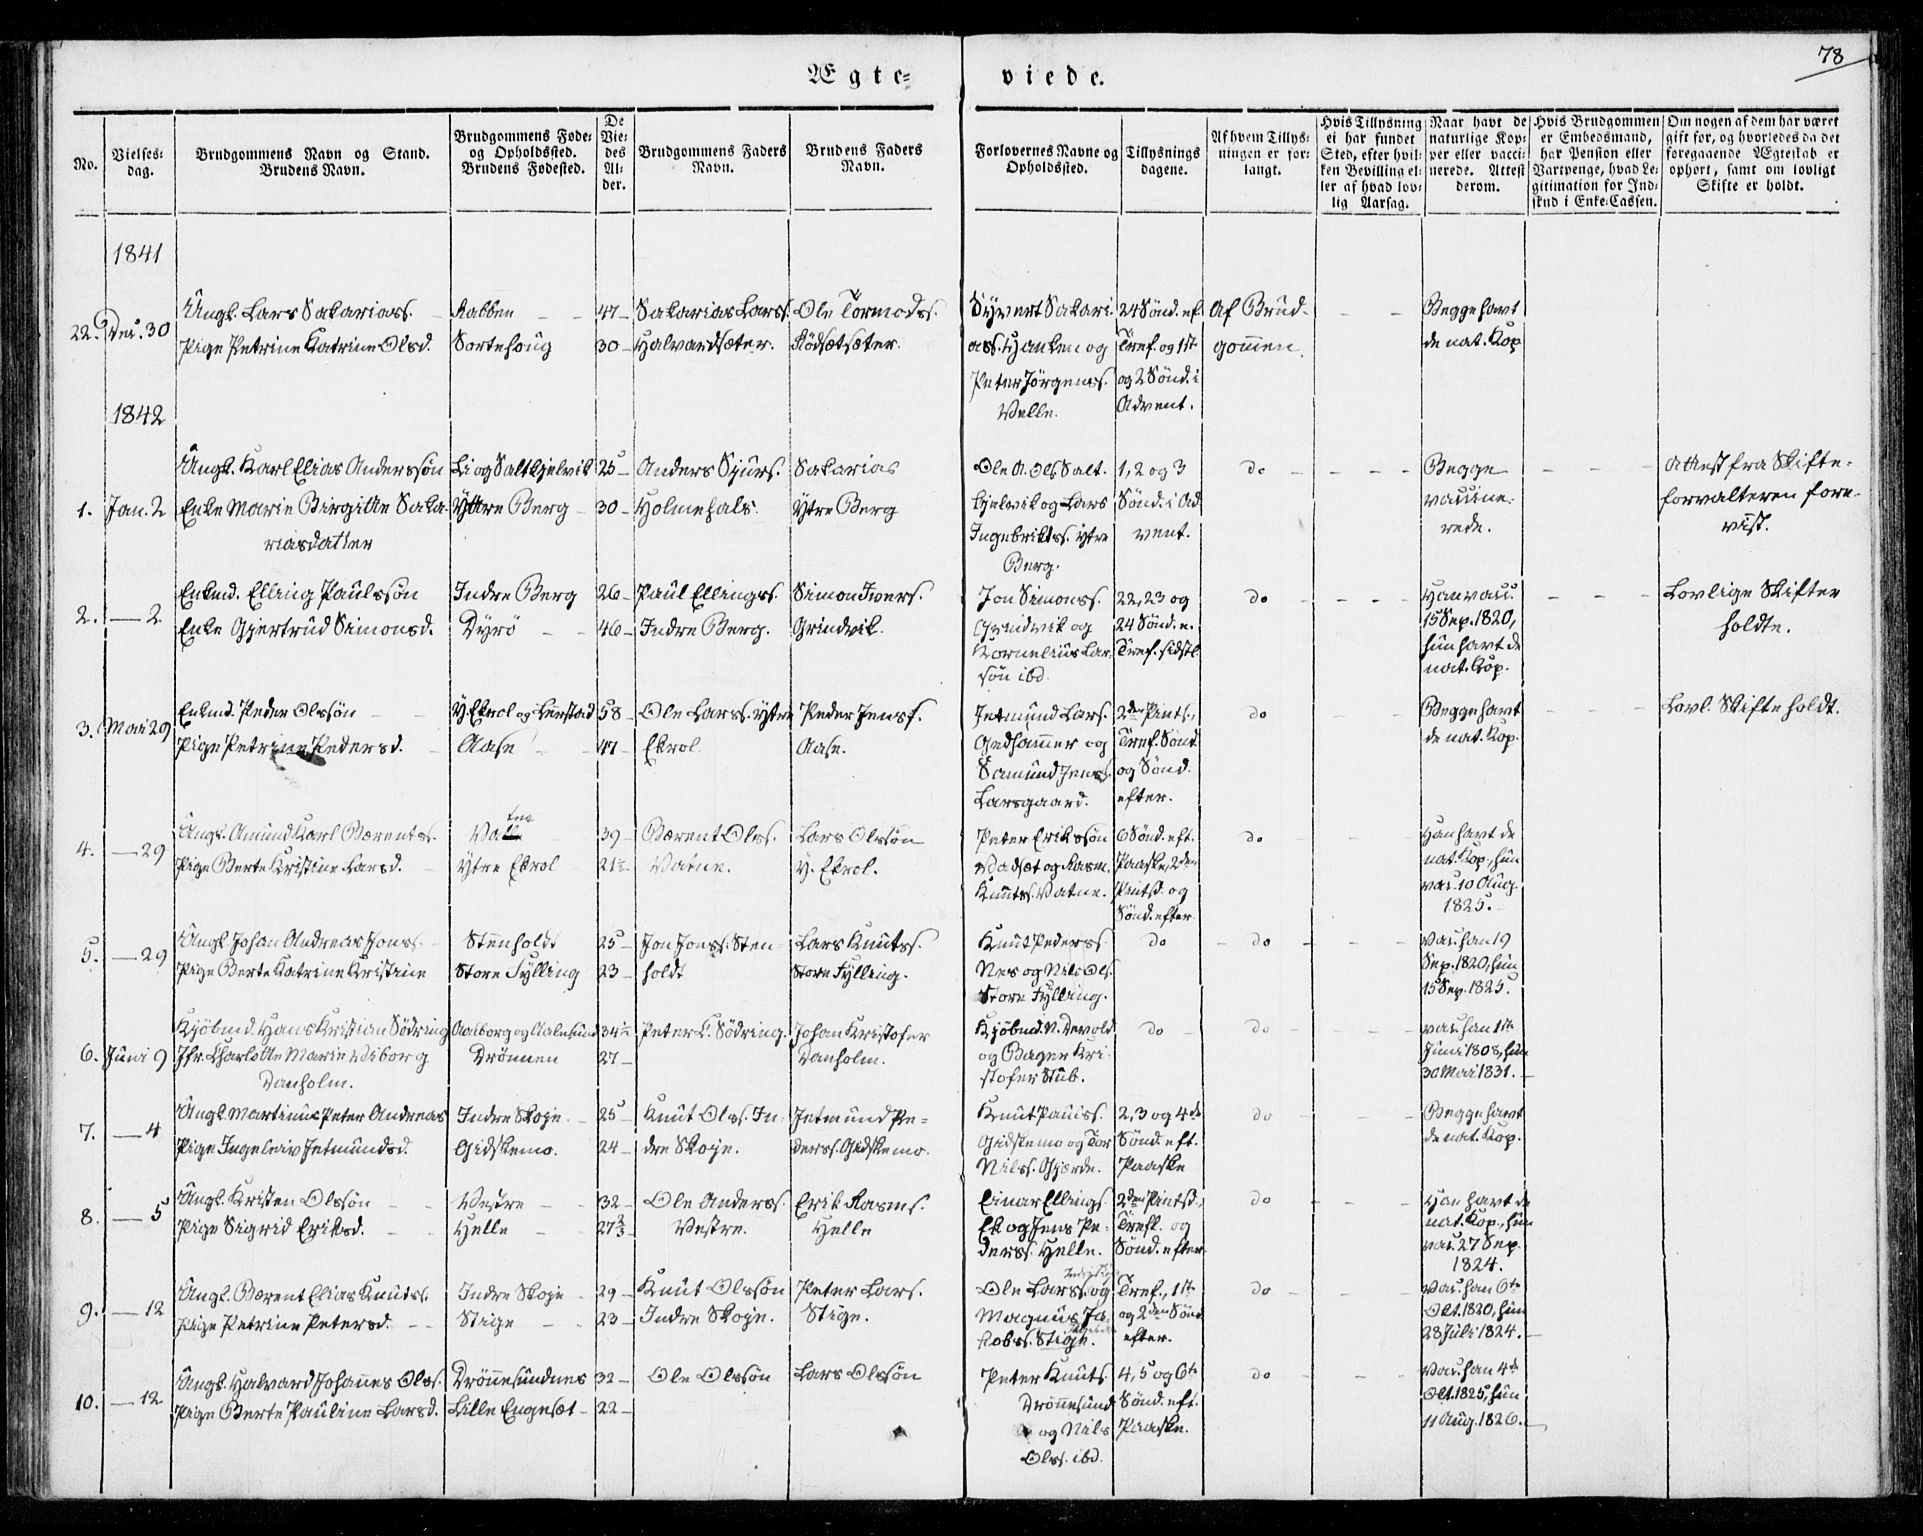 78
Ægte=
viede.
No.
Vielses=
dag.
Brudgommens Navn og Stand.
Brudens Navn.
Brudgommens Føde=
og Opholdssted.
Brudens Fødested.
De
Vie=
des
Al=
der.
Brudgommens Faders
Navn.
Brudens Faders
Navn.
Forlovernes Navne og
Opholdssted.
Tillysnings
dagene.
Af hvem Tillys=
ningen er for=
langt.
Hvis Tillysning
ei har fundet
Sted, efter hvil=
ken Bevilling el=
ler af hvad lov=
lig Aarsag.
Naar havt de
naturlige Kop=
per eller vacci=
nerede. Attest
derom.
Hvis Brudgommen
er Embedsmand,
har Pension eller
Vartpenge, hvad Le=
gitimation for Ind=
skud i Enke=Cassen.
Om nogen af dem har været
gift før, og hvorledes da det
foregaaende Ægteskab er
ophørt, samt om lovligt
Skifte er holdt.
1841
22. Dec. 30
Ungk. Lars Sakariass.
Pige Petrine Katrine Olsd.
Rabben
Sortehoug
47
30
Sakarias Larss.
Halvardsæter.
Ole Tormodss.
Rødsætsæter.
Syvert Sakari-
ass. Hanken og
Peter Jörgenss.
Velle.
24 Sönd. ef.
Tref. og 1ste
og 2 Sönd. i
Advent.
Af Brud-
gommen.
Begge havt
de nat. Kop
1842
1. Jan. 2
Ungk. Karl Elias Anderssön
Enke Marie Birgitte Saka-
riasdatter
Li og Saltkjelvik
Yttre Berg
25
30
Anders Sjurs.
Holmehals.
Sakarias
Ytre Berg
Ole A. Ols Salt-
kjelvik og Lars
Ingebriktss. ytre
Berg.
1, 2 og 3
Sönd. i Ad
vent.
do
Begge
vaccine-
rede.
Attest fra Skifte-
forvalteren fore-
vist.
2. — 2
Enkmd. Elling Paulssön
Enke Gjertrud Simonsd.
Indre Berg
Dyrö
26
46
Paul Ellings.
Indre Berg.
Simon Ivers.
Grindvik.
Jon Simonss.
Grindvik og
Kornelius Lar-
sön ibd.
22, 23 og
24 Sönd. e.
Tref. sidstl.
do
Han vacc.
15 Sep. 1820,
hun havt de
nat. Kop.
Lovlige Skifter
holdte.
3. Mai 29
Enkmd. Peder Olssön
Pige Petrine Pedersd.
Y. Ekrol og Liavstad
Aase
58
47
Ole Larss. ytre
Ekrol
Peder Jensf.
Aase.
Jetmund Lars.
Gjedhammer og
Samund Jenss.
Larsgaard.
2den Pints.,
Tref. Sönd.
og Sönd.
efter.
do
Begge havt
de nat. Kop.
Lovl. Skifte holdt.
4. — 29
Ungk. Amund Karl Bærentss.
Pige Berte Kristine Larsd.
Vatne
Ytre Ekrol
39
21½
Bærent Olss.
Vatne.
Lars Olssön
Y. Ekrol.
Peter Erikssön
Vadsæt og Rasm.
Knutss. Vatne.
6 Sönd. eft.
Paaske, 2den
Pintsd. og
Sönd. efter
do
Han havt de
nat. Kop., hun
vac. 10 Aug.
1825.
5. — 29
Ungk. Johan Andreas Jonss.
Pige Berte Katrine Kristine
Stenholdt
Store Fylling
25
23
Jon Jonss. Sten-
holdt
Lars Knutss.
Store Fylling.
Knut Pederss.
Nes og Nils Ols.
Store Fylling.
do
do
Vac. han 19
Sep. 1820, hun
15 Sep. 1825.
6. Juni 9
Kjöbmd. Hans Kristian Södring
Jfr. Charlotte Marie Viborg
Danholm.
Aalborg og Aalesund
Drönnen
34½
27
Peter C. Södring.
Johan Kristofer
Danholm.
Kjöbmd. N. Devold
og Bager Kri-
stofer Stub.
do
do
vac. han 1ste
Juni 1808, hun
30 Mai 1831.
7. — 4
Ungk. Martinus Peter Andreas
Pige Ingeleiv Jetmundsd.
Indre Skoje
Gidskemo.
25
24
Knut Ols. In-
dre Skoje.
Jetmund Pe-
derss. Gidskemo.
Knut Pauss.
Gidskemo og Tor
Nilss. Gjærde.
2, 3 og 4de
Sönd. eft.
Paaske
do
Begge havt
de nat. Kop.
8. — 5
Ungk. Kristen Olssön
Pige Sigrid Eriksd.
Vestre
Helle
32
27⅔
Ole Anderss.
Vestre.
Erik Rasms.
Helle
Einar Ellings.
Ek og Jens Pe-
derss. Helle.
2den Pintsd.,
Trefl. og
Sönd. efter
do
Han havt de
nat. Kop., hun
vac. 27 Sep.
1824.
9. — 12
Ungk. Bærent Elias Knutss.
Pige Petrine Petersd.
Indre Skoje
Stige
29
23
Knut Olssön
Indre Skoje.
Peter Lars.
Stige.
Ole Larss. og
Magnus Ja-
kobss. Stige.
Tref., 1ste
og 2den Sönd.
efter.
do
Vac. han 6te
Okt. 1820, hun
28 Juli 1824.
10. — 12
Ungk. Halvard Johannes Olss.
Pige Berte Pauline Larsd.
Drönnesundnes
Lille Engeset
32
22
Ole Olssön
Lars Olssön
Peter Knuts.
Drönnesund
og Nils
Olss. ibd.
4, 5 og 6te
Sönd. eft.
Paaske.
do
Vac. han 4de
Okt. 1825, hun
11 Aug. 1826.